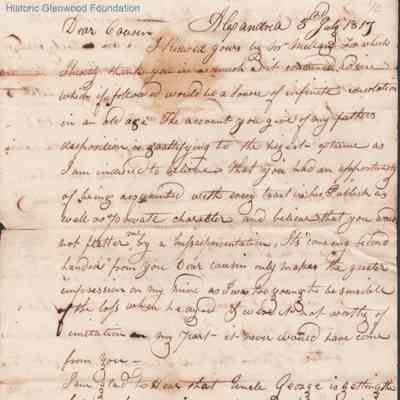 Historic Glenwood Foundation
Alexandria 5th July 1817
Dear Cousin
I received yours by Mr for which
I thank you in as much as it contained
which if followed would be a source of infinite consolation
in an old age The account you give of my fathers
disposition is gratifying to the highest extreme as
I am induced to believe that you had an opportunity
of being acquainted with every trait in his Publick as
well as private character and believe that you would
not flatter me by a misrepresentation, Its coming second
handed from you Dear cousin only makes the greater
impression on my mind as I was too young to be sensible
of the loss when he and were it not worthy of
imitation on my part it never would have come
from you
I am glad to hear that Uncle George is getting the